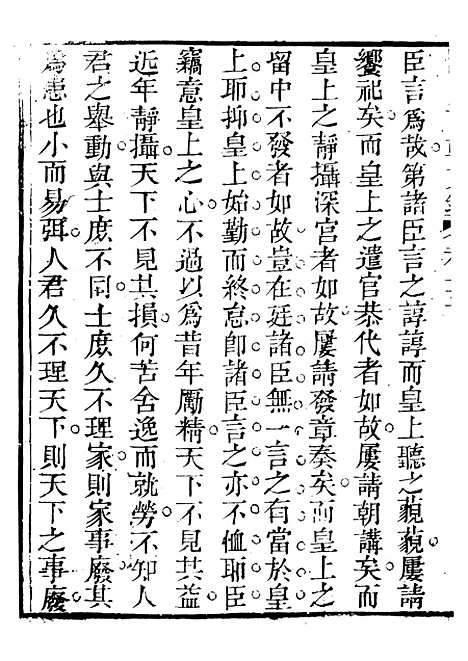 臣言爲哉第諸臣言之諄諄而皇上聽之藐藐屢請
饗祀矣而皇上之遣官恭代者如故屢請朝講矣而
皇上之靜攝深宮者如故屢請發章奏矣而皇上之
留中不發者如故豈在廷諸臣無一言之有當於皇
上耶抑皇上始勤而終怠卽諸臣言之亦不恤耶臣
竊意皇上之心不過以爲昔年勵精天下不見其益
近年靜攝天下不見其損何苦舍逸而就勞不知人
君之舉動與士庶不同士庶久不理家則家事廢其
爲患也小而易弭人君久不理天下則天下之事廢